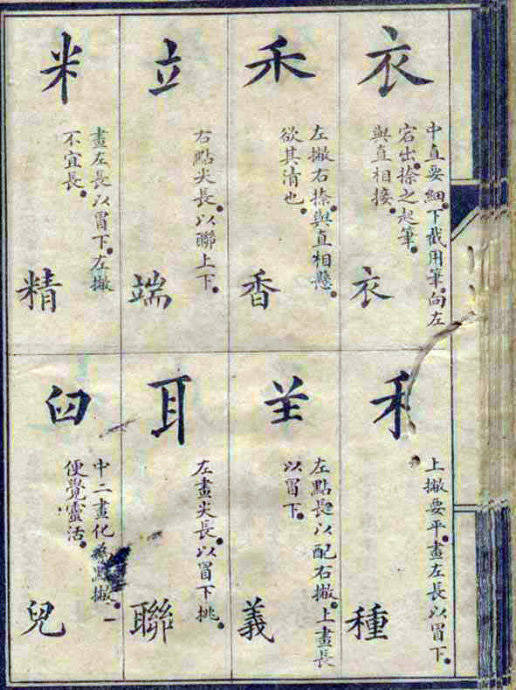 衣
中直要細。下截用筆。向左
宕出。捺之起筆。
與直相接。
衣
禾
左撇右捺。與直相懸。
欲其清也。
香
立
右點尖長。以聯上下。
端
米
畫左長以冒下。左撇
不宜長。
精
禾
上撇要平。畫左長以冒下。
種
𦍌
左點長以配右撇。上畫長
以冒下。
義
耳
左畫尖長。以冒下挑。
聯
臼
中二畫化點撇。一
便覺靈活。
兒